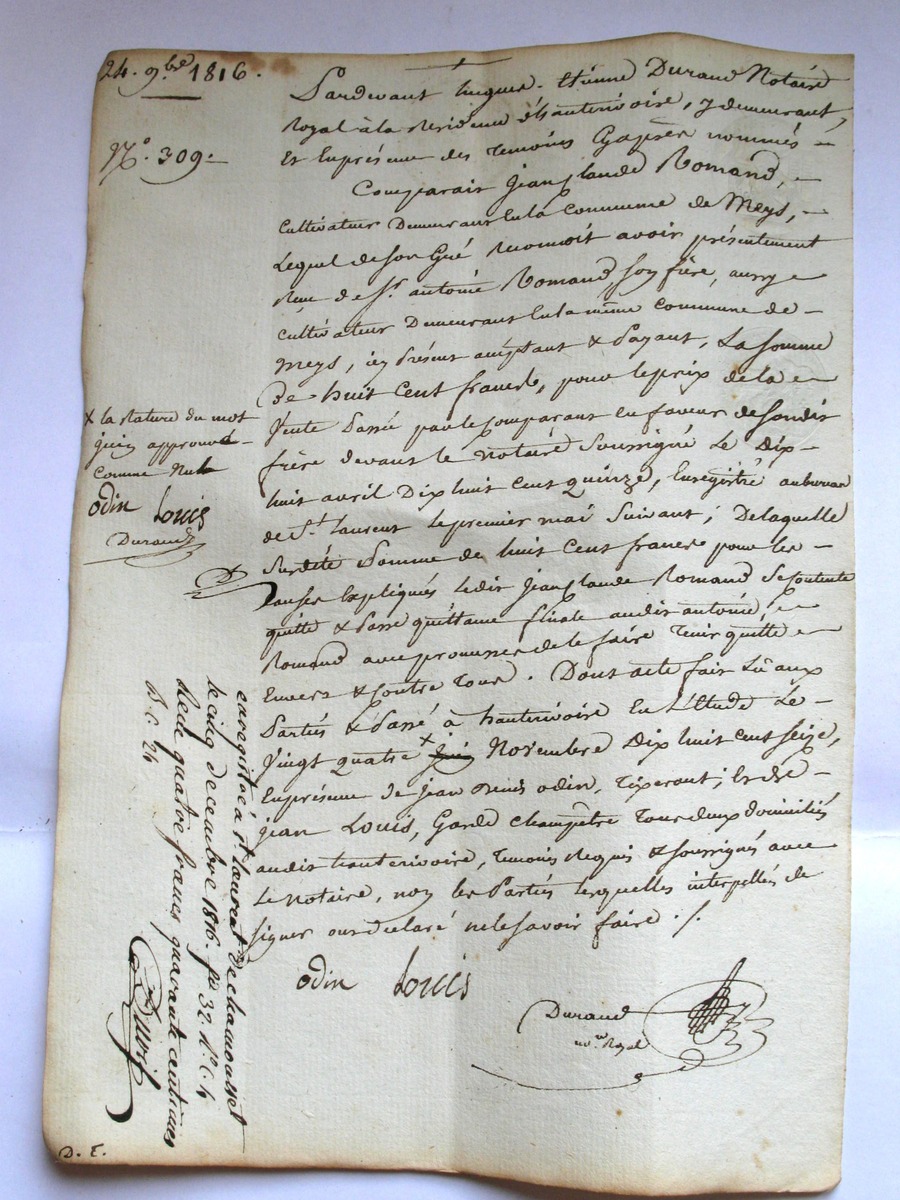 24. 9.bre 1816.
N.o 309.
Pardevant hugues-Etienne Durand Notaire
Royal à la Residence d'hauterivoire, y demeurant,
Et En présence des Temoins Cyaprès nommés
Comparait Jean Claude Romand,
Cultivateur Demeurant En la Commune de Meys,
Lequel de son Gré reconnoit avoir présentement
Reçu de Sr. antoine Romand, son frère, aussy
Cultivateur Demeurant En la même Commune de
Meys, icy Présent acceptant & Payant, La Somme
De huit Cent francs, pour le prix de la
Vente Passée par le Comparant en faveur de Sondit
frère devant le Notaire Soussigné Le Dix
huit avril Dix huit Cent quinze, Enregistré au bureau
de St. Laurent le premier mai Suivant; De laquelle
Susdite Somme de huit Cent francs pour les
Causes Expliqués Ledit Jean Claude Romand Se Contente
quitte & Passe quittance finale audit antoine
Romand avec promesses de le faire Tenir quitte
Envers & Contre Tous. Dont acte fait Lu aux
Parties & Passé à hauterivoire En L'Etude Le
Vingt quatre x juin Novembre Dix huit Cent Seize,
En présence de Jean Denis odin, Tixerant; Et de
Jean Louis, Garde Champêtre Tous deux domiciliés
audit hauterivoire, Temoins Requis & Soussignés avec
Le Notaire, non les Parties Lesquelles interpellés de
Signer ont declaré ne le Savoir faire ./.
odin Louis
Durand
no.re Royal
x la Rature du mot
juin approuvé
Comme Nulle
odin Louis
Durand
enregistré à St. Laurent de chamousset
le cinq decembre 1816. fo 32. Ro. C. 4
Reçu quatre francs quarante centimes
D. C. 24
D. E.